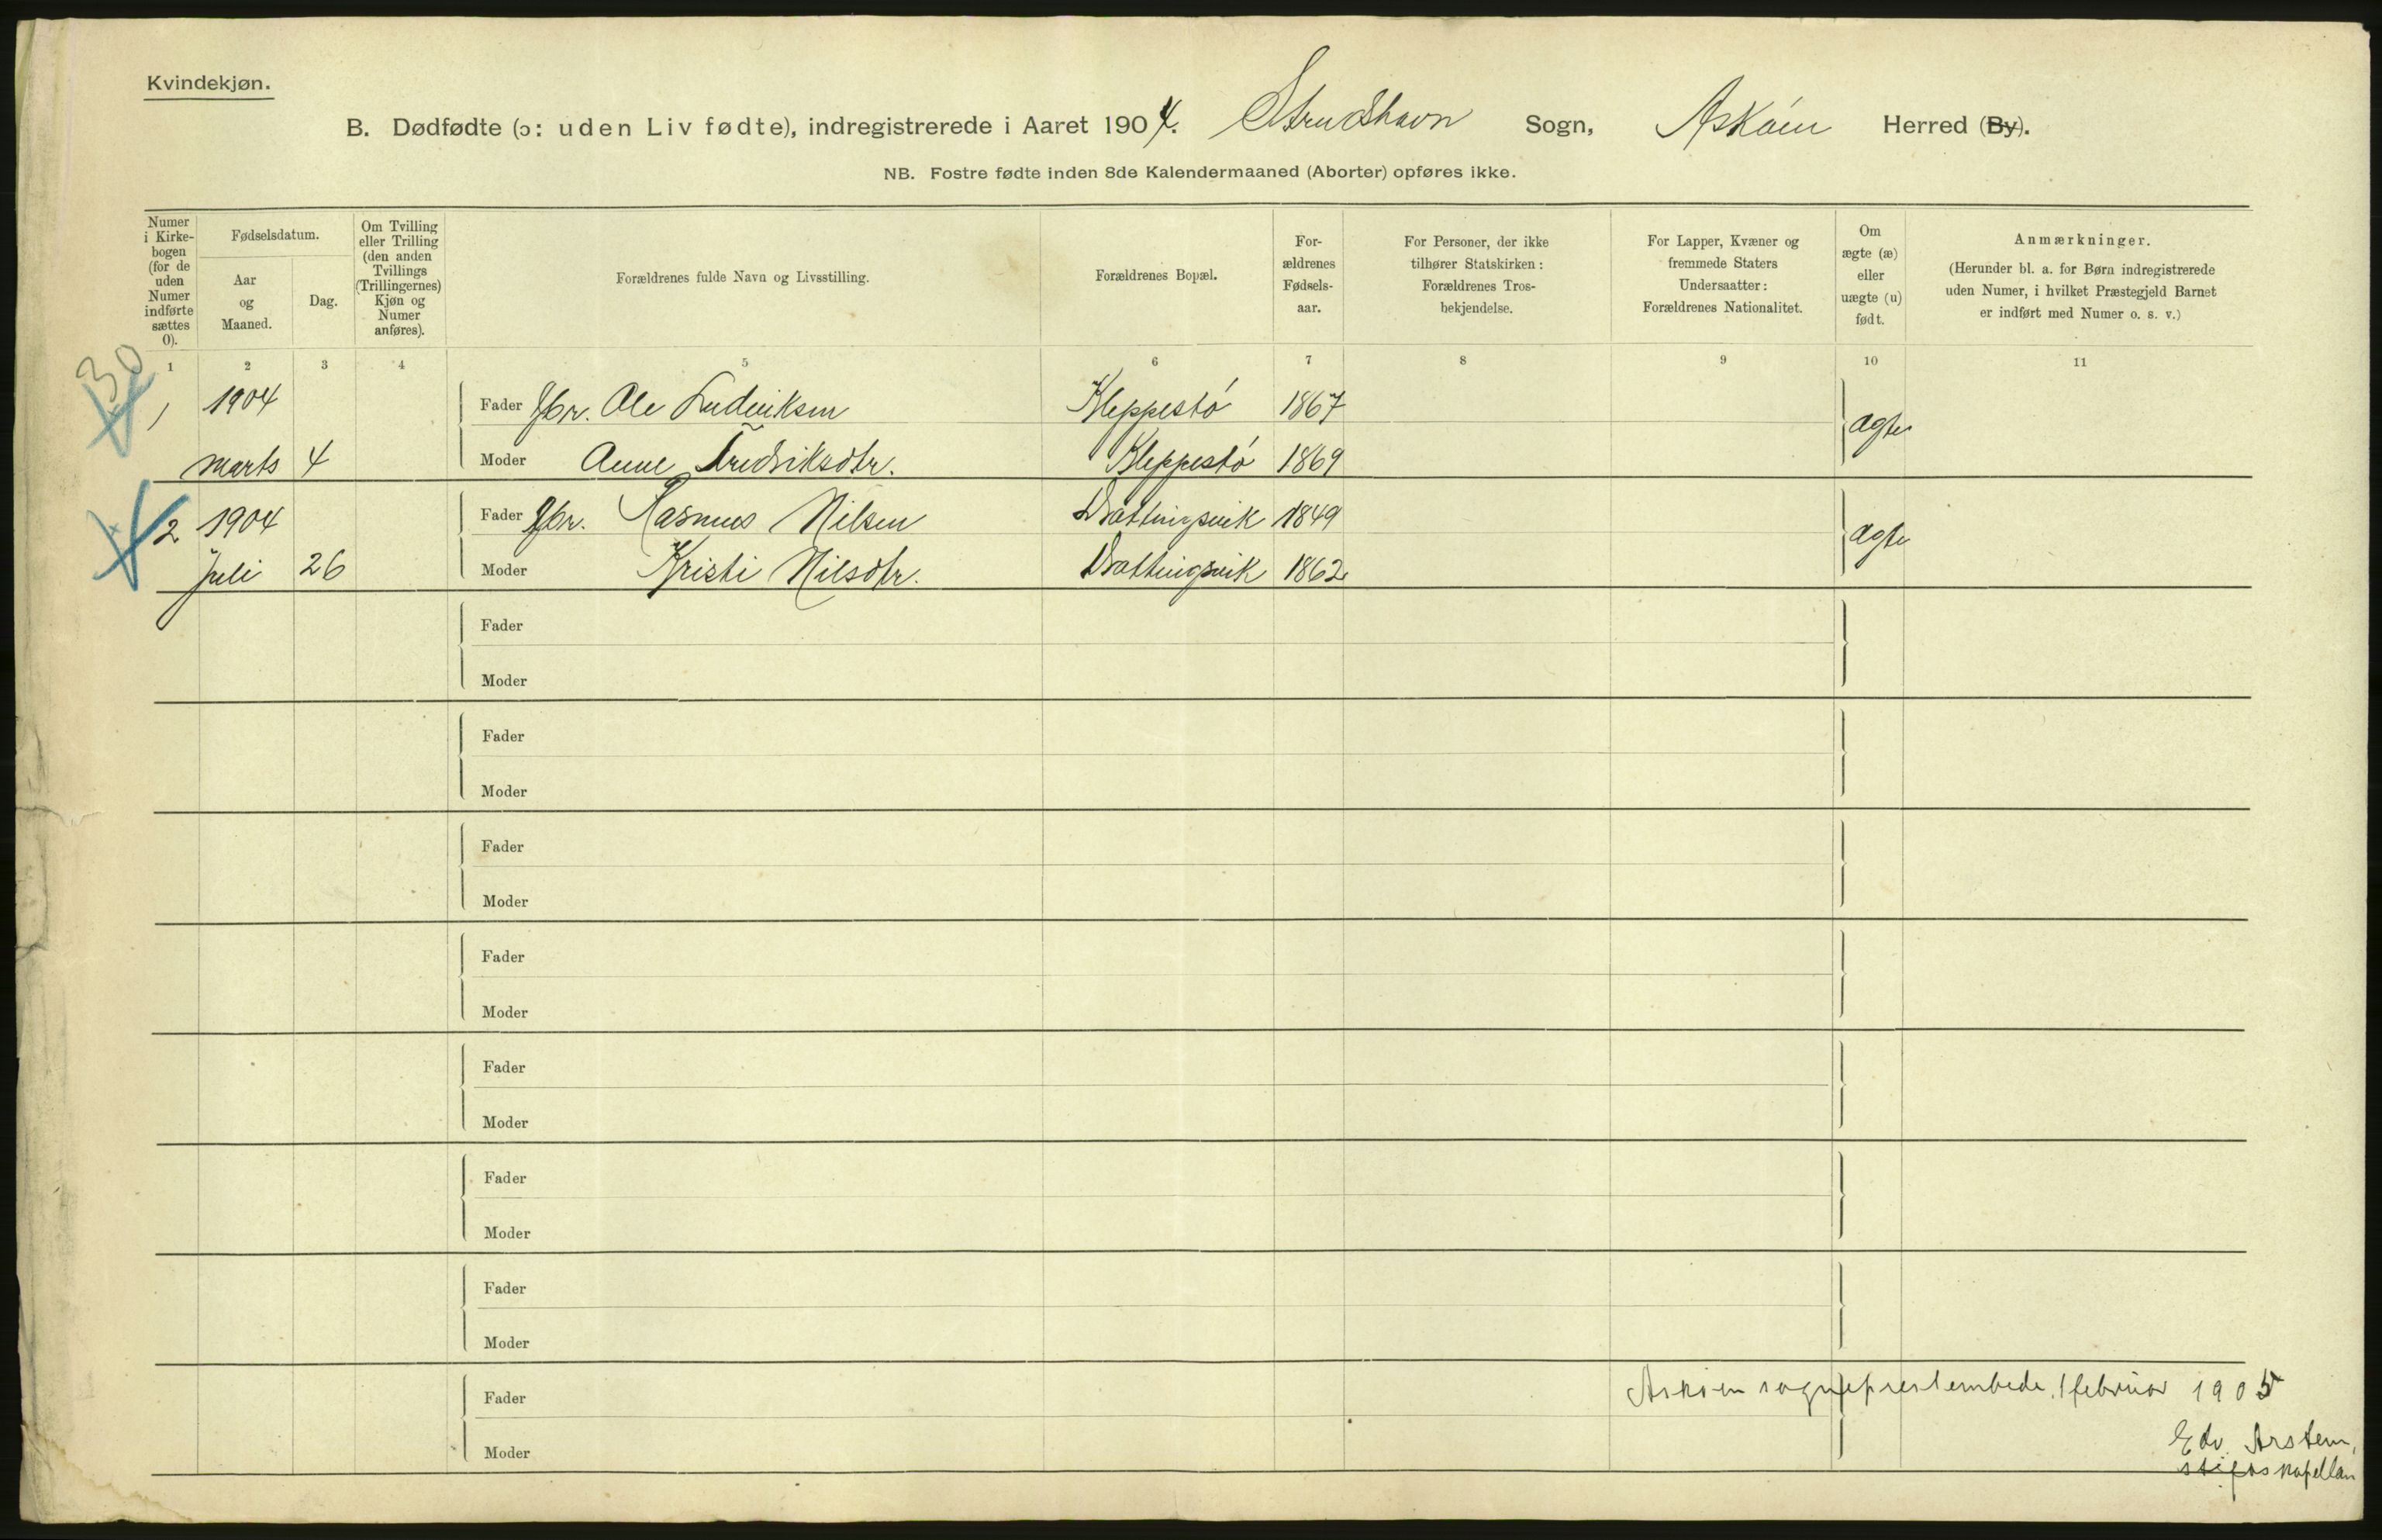 Kvindekjøn.
B. Dødfødte (ɔ: uden Liv fødte), indregistrerede i Aaret 1904. Strudshavn Sogn, Askøen Herred (By).
NB. Fostre fødte inden 8de Kalendermaaned (Aborter) opføres ikke.
Numer i Kirkebogen (for de uden Numer indførte sættes 0).
Fødselsdatum.
Aar og Maaned.
Dag.
Om Tvilling eller Trilling (den anden Tvillings (Trillingernes) Kjøn og Numer anføres).
Forældrenes fulde Navn og Livsstilling.
Forældrenes Bopæl.
Forældrenes Fødselsaar.
For Personer, der ikke tilhører Statskirken: Forældrenes Trosbekjendelse.
For Lapper, Kvæner og fremmede Staters Undersaatter: Forældrenes Nationalitet.
Om ægte (æ) eller uægte (u) født.
Anmærkninger.
(Herunder bl. a. for Børn indregistrerede uden Numer, i hvilket Præstegjeld Barnet er indført med Numer o. s. v.)
1 2 3 4 5 6 7 8 9 10 11
30
1 1904 Fader Gbr. Ole Ludviksen Kleppestø 1867 ægte
marts 4 Moder Anne Fredriksdtr. Kleppestø 1869
2 1904 Fader Gbr. Rasmus Nilsen Drottningsvik 1849 ægte
Juli 26 Moder Kristi Nilsdtr. Drottningsvik 1862
Fader
Moder
Fader
Moder
Fader
Moder
Fader
Moder
Fader
Moder
Fader
Moder
Fader
Moder
Fader Askøen sogneprestembede, 1 februar 1905
Edv. Arstein,
Moder stiftskapellan